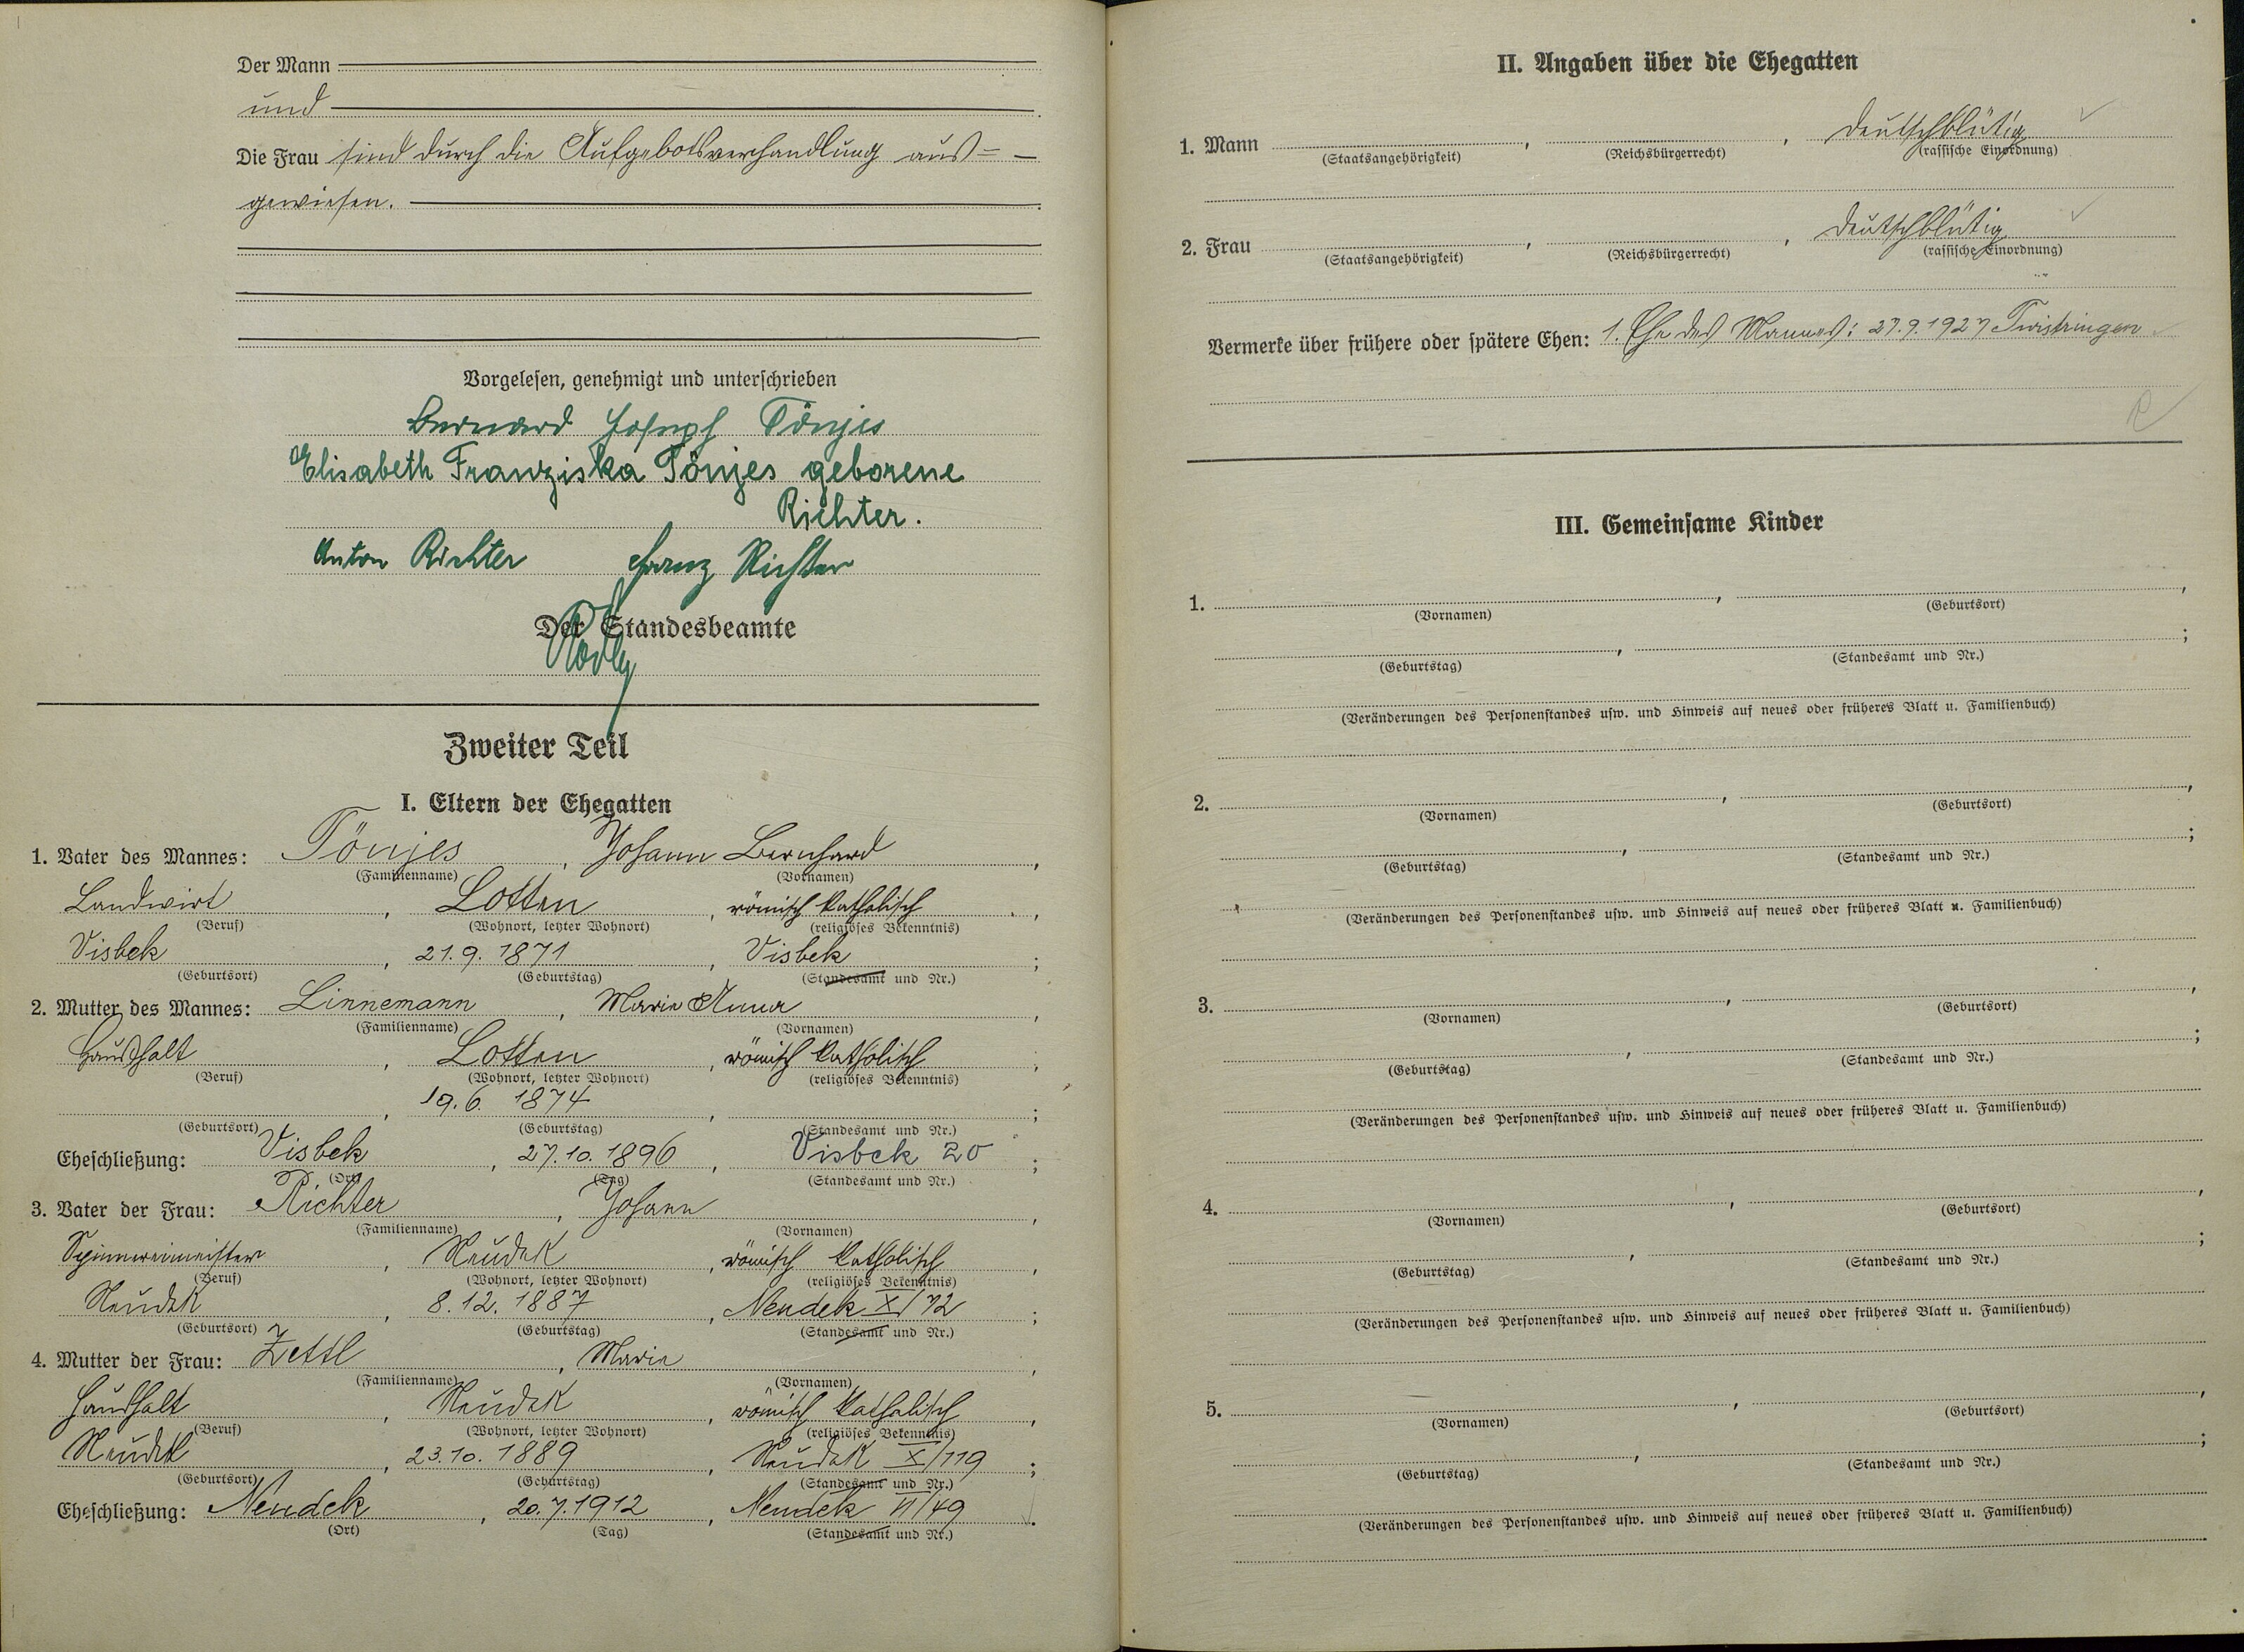 Der Mann
und
Die Frau sind durch die Aufgebotsverhandlung aus=
gewiesen.
Vorgelesen, genehmigt und unterschrieben
Bernard Joseph Tönjes
Elisabeth Franziska Tönjes geborene
Richter.
Anton Richter Franz Richter
Der Standesbeamte
Zweiter Teil
I. Eltern der Ehegatten
1. Vater des Mannes: Tönjes, Johann Bernhard,
(Familienname) (Vornamen)
Landwirt, Lotten, römisch katholisch,
(Beruf) (Wohnort, letzter Wohnort) (religiöses Bekenntnis)
Visbek, 21.9.1871, Visbek;
(Geburtsort) (Geburtstag) (Standesamt und Nr.)
2. Mutter des Mannes: Linnemann, Maria Anna,
(Familienname) (Vornamen)
Haushalt, Lotten, römisch katholisch;
(Beruf) (Wohnort, letzter Wohnort) (religiöses Bekenntnis)
, 19.6. 1874, ;
(Geburtsort) (Geburtstag) (Standesamt und Nr.)
Eheschließung: Visbek, 27.10.1896, Visbek 20;
(Ort) (Tag) (Standesamt und Nr.)
3. Vater der Frau: Richter, Johann,
(Familienname) (Vornamen)
Spinnereimeister, Neudek, römisch katholisch,
(Beruf) (Wohnort, letzter Wohnort) (religiöses Bekenntnis)
Neudek, 8.12.1887, Neudek X/72;
(Geburtsort) (Geburtstag) (Standesamt und Nr.)
4. Mutter der Frau: Zettl, Maria,
(Familienname) (Vornamen)
Haushalt, Neudek, römisch katholisch,
(Beruf) (Wohnort, letzter Wohnort) (religiöses Bekenntnis)
Neudek, 23.10.1889, Neudek X/119;
(Geburtsort) (Geburtstag) (Standesamt und Nr.)
Eheschließung: Neudek, 20.7.1912, Neudek VI/49.
(Ort) (Tag) (Standesamt und Nr.)
II. Angaben über die Ehegatten
1. Mann , , deutschblütig
(Staatsangehörigkeit) (Reichsbürgerrecht) (rassische Einordnung)
2. Frau , , deutschblütig
(Staatsangehörigkeit) (Reichsbürgerrecht) (rassische Einordnung)
Vermerke über frühere oder spätere Ehen: 1. Ehe des Mannes: 27.9.1927 Twistringen
III. Gemeinsame Kinder
1. , ,
(Vornamen) (Geburtsort)
, ;
(Geburtstag) (Standesamt und Nr.)
(Veränderungen des Personenstandes usw. und Hinweis auf neues oder früheres Blatt u. Familienbuch)
2. , ,
(Vornamen) (Geburtsort)
, ;
(Geburtstag) (Standesamt und Nr.)
(Veränderungen des Personenstandes usw. und Hinweis auf neues oder früheres Blatt u. Familienbuch)
3. , ,
(Vornamen) (Geburtsort)
, ;
(Geburtstag) (Standesamt und Nr.)
(Veränderungen des Personenstandes usw. und Hinweis auf neues oder früheres Blatt u. Familienbuch)
4. , ,
(Vornamen) (Geburtsort)
, ;
(Geburtstag) (Standesamt und Nr.)
(Veränderungen des Personenstandes usw. und Hinweis auf neues oder früheres Blatt u. Familienbuch)
5. , ,
(Vornamen) (Geburtsort)
, ;
(Geburtstag) (Standesamt und Nr.)
(Veränderungen des Personenstandes usw. und Hinweis auf neues oder früheres Blatt u. Familienbuch)